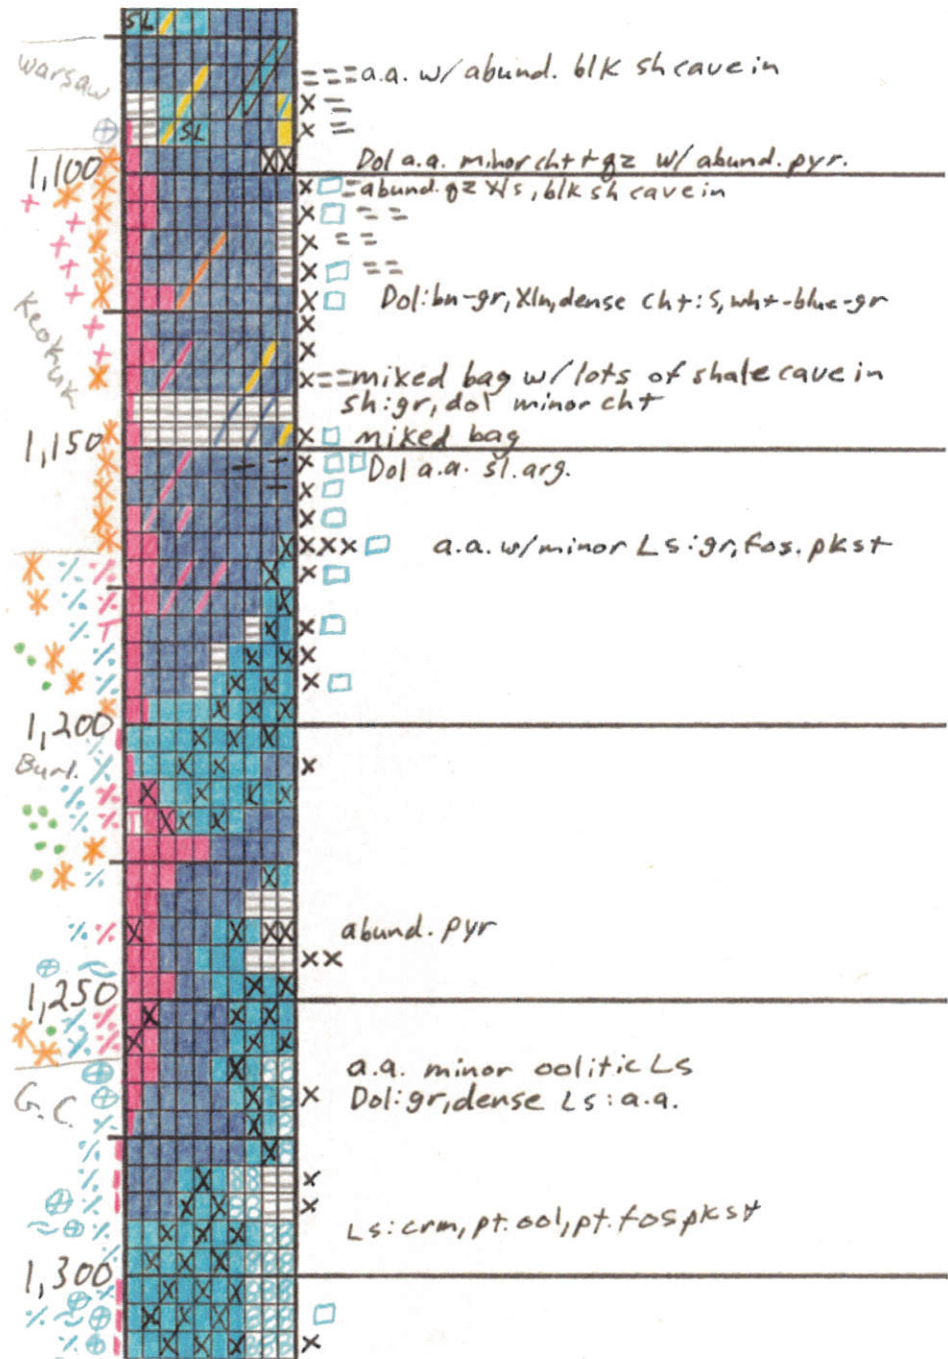 SL
warsaw
===a.a. w/ abund. blk sh cave in
SL
1,100
Dol a.a. minor cht + qz w/ abund. pyr.
abund. qz Xls, blk sh cave in
Dol: bn-gr, Xln, dense cht: s, wht-blue-gr
Keokuk
mixed bag w/ lots of shale cave in
sh: gr, dol minor cht
1,150
mixed bag
Dol a.a. sl. arg.
a.a. w/ minor Ls: gr, fos. pkst
1,200
Burl.
abund. pyr
1,250
a.a. minor oolitic Ls
G.C.
Dol: gr, dense Ls: a.a.
Ls: crm, pt. ool, pt. fos pkst
1,300